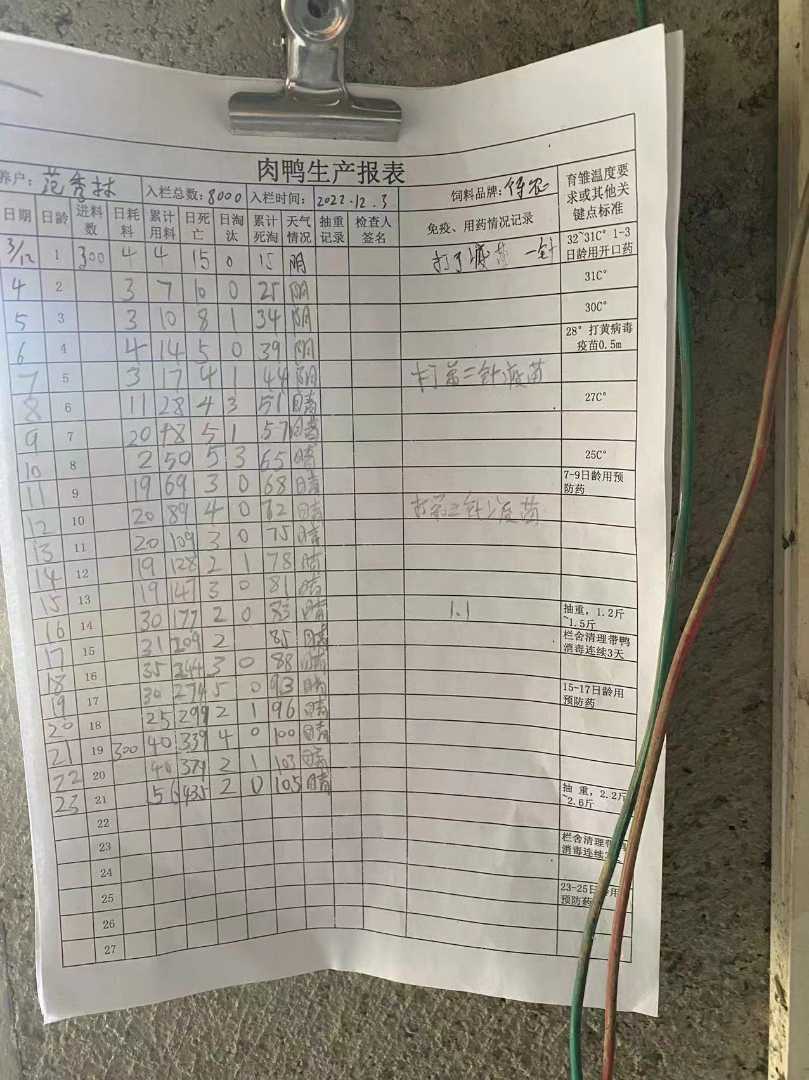 肉鸭生产报表
养户: 范秀林 入栏总数: 8000 入栏时间: 2022.12.3 饲料品牌: 育雏温度要求或其他关键点标准
日期 日龄 进料数 日耗料 累计用料 日死亡 日淘汰 累计死淘 天气情况 抽重记录 检查人签名 免疫、用药情况记录
3/12 1 300 4 4 15 0 15 阴 打了疫苗一针 32~31C° 1-3日龄用开口药
4 2 3 7 10 0 25 阴 31C°
5 3 3 10 8 1 34 阴 30C°
6 4 4 14 5 0 39 阴 28° 打黄病毒疫苗0.5m
7 5 3 17 4 1 44 阴 打第二针疫苗
8 6 11 28 4 3 51 晴 27C°
9 7 20 48 5 1 57 晴
10 8 2 50 5 3 65 晴 25C°
11 9 19 69 3 0 68 晴 7-9日龄用预防药
12 10 20 89 4 0 72 晴 打第三针疫苗
13 11 20 109 3 0 75 晴
14 12 19 128 2 1 78 晴
15 13 19 147 3 0 81 晴
16 14 30 177 2 0 83 晴 1.1 抽重, 1.2斤~1.5斤
17 15 31 209 2 85 晴 栏舍清理带鸭消毒连续3天
18 16 35 244 3 0 88 晴
19 17 30 274 5 0 93 晴 15-17日龄用预防药
20 18 25 299 2 1 96 晴
21 19 300 40 339 4 0 100 晴
22 20 40 379 2 1 103 晴
23 21 56 435 2 0 105 晴 抽重, 2.2斤~2.6斤
22
23 栏舍清理带鸭消毒连续
24
25 23-25日 用预防药
26
27